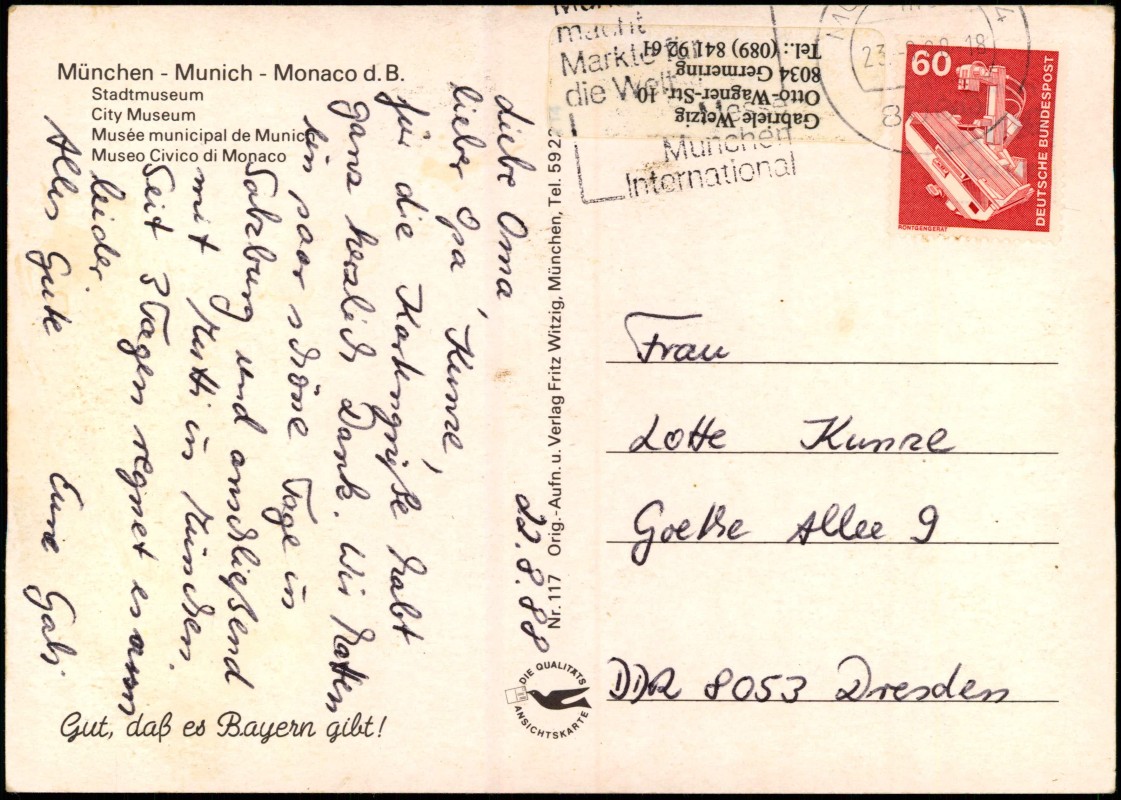 München - Munich - Monaco d. B.
Stadtmuseum
City Museum
Musée municipal de Munich
Museo Civico di Monaco
Liebe Oma, 22.8.88
lieber Opa Kunze,
für die Kartengrüße habt
ganz herzlich Dank. Wir hatten
ein paar schöne Tage in
Salzburg und anschließend
mit in München.
Seit 3 Tagen regnet es
leider.
Alles Gute Eure Gabi
Gut, daß es Bayern gibt!
Nr. 117 Orig.-Aufn. u. Verlag Fritz Witzig, München, Tel. 592
DIE QUALITÄTS
ANSICHTSKARTE
macht
Märkte für
die Welt
Messe
München
International
Gabriele Wetzig
Otto-Wagner-Str. 10
8034 Germering
Tel.: (089) 841 92 61
60
DEUTSCHE BUNDESPOST
RÖNTGENGERÄT
Frau
Lotte Kunze
Goethe Allee 9
DDR 8053 Dresden